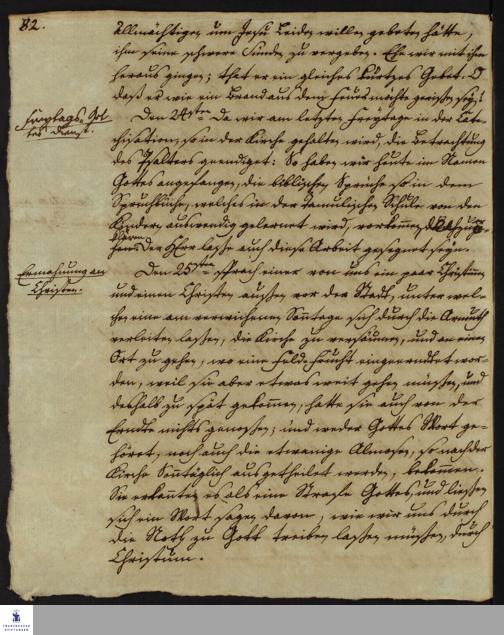 82.
Allmächtigen um Jesu Leiden willen gebeten hätte,
ihm seine schwere Sünden zu vergeben. Ehe wir mit ihm
heraus gingen; that er ein gleiches kurtzes Gebet. O
daß er wie ein Brand aus dem Feuer möchte gerißen seyn!
Freytags Got
tes Dienst.
Den 24sten Da wir am letzten Freytage in der Cate-
chisation, so in der Kirche gehalten wird, die Betrachtung
des Psalters geendiget: So haben wir heute im Namen
Gottes angefangen, die biblischen Sprüche so in dem
Spruchbuche, welches in der Tamulischen Schule von den
Kindern auswendig gelernet wird, vorkommen
Der Herr lasse auch diese Arbeit gesegnet seyn.
Ermahnung an
Christen.
Den 25sten sprach einer von uns ein paar Christinnen
und einen Christen außen vor der Stadt, unter wel-
che, eine am verwichenen Sonntage sich durch die Armuth
verleiten lassen, die Kirche zu versäumen, und an einen
Ort zu gehen, wo eine Feld-Frucht eingeerndtet wor-
den, weil sie aber etwas weit gehen müßen, und
deshalb zu spät gekommen, hatte sie auch von der
Erndte nichts genossen; und weder Gottes Wort ge-
höret, noch auch die etwanige Almosen, so nach der
Kirche Sonntäglich ausgetheilet werden, bekommen.
Sie erkannten es als eine Strafe Gottes, und ließen
sich ein Wort sagen davon, wie wir uns durch
die Noth zu Gott treiben laßen müßen, durch
Christum.
FRANCKESCHE
STIFTUNGEN